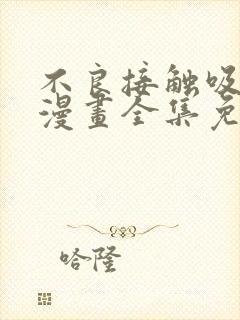 不良接触吸
漫畫全集免
哈隆